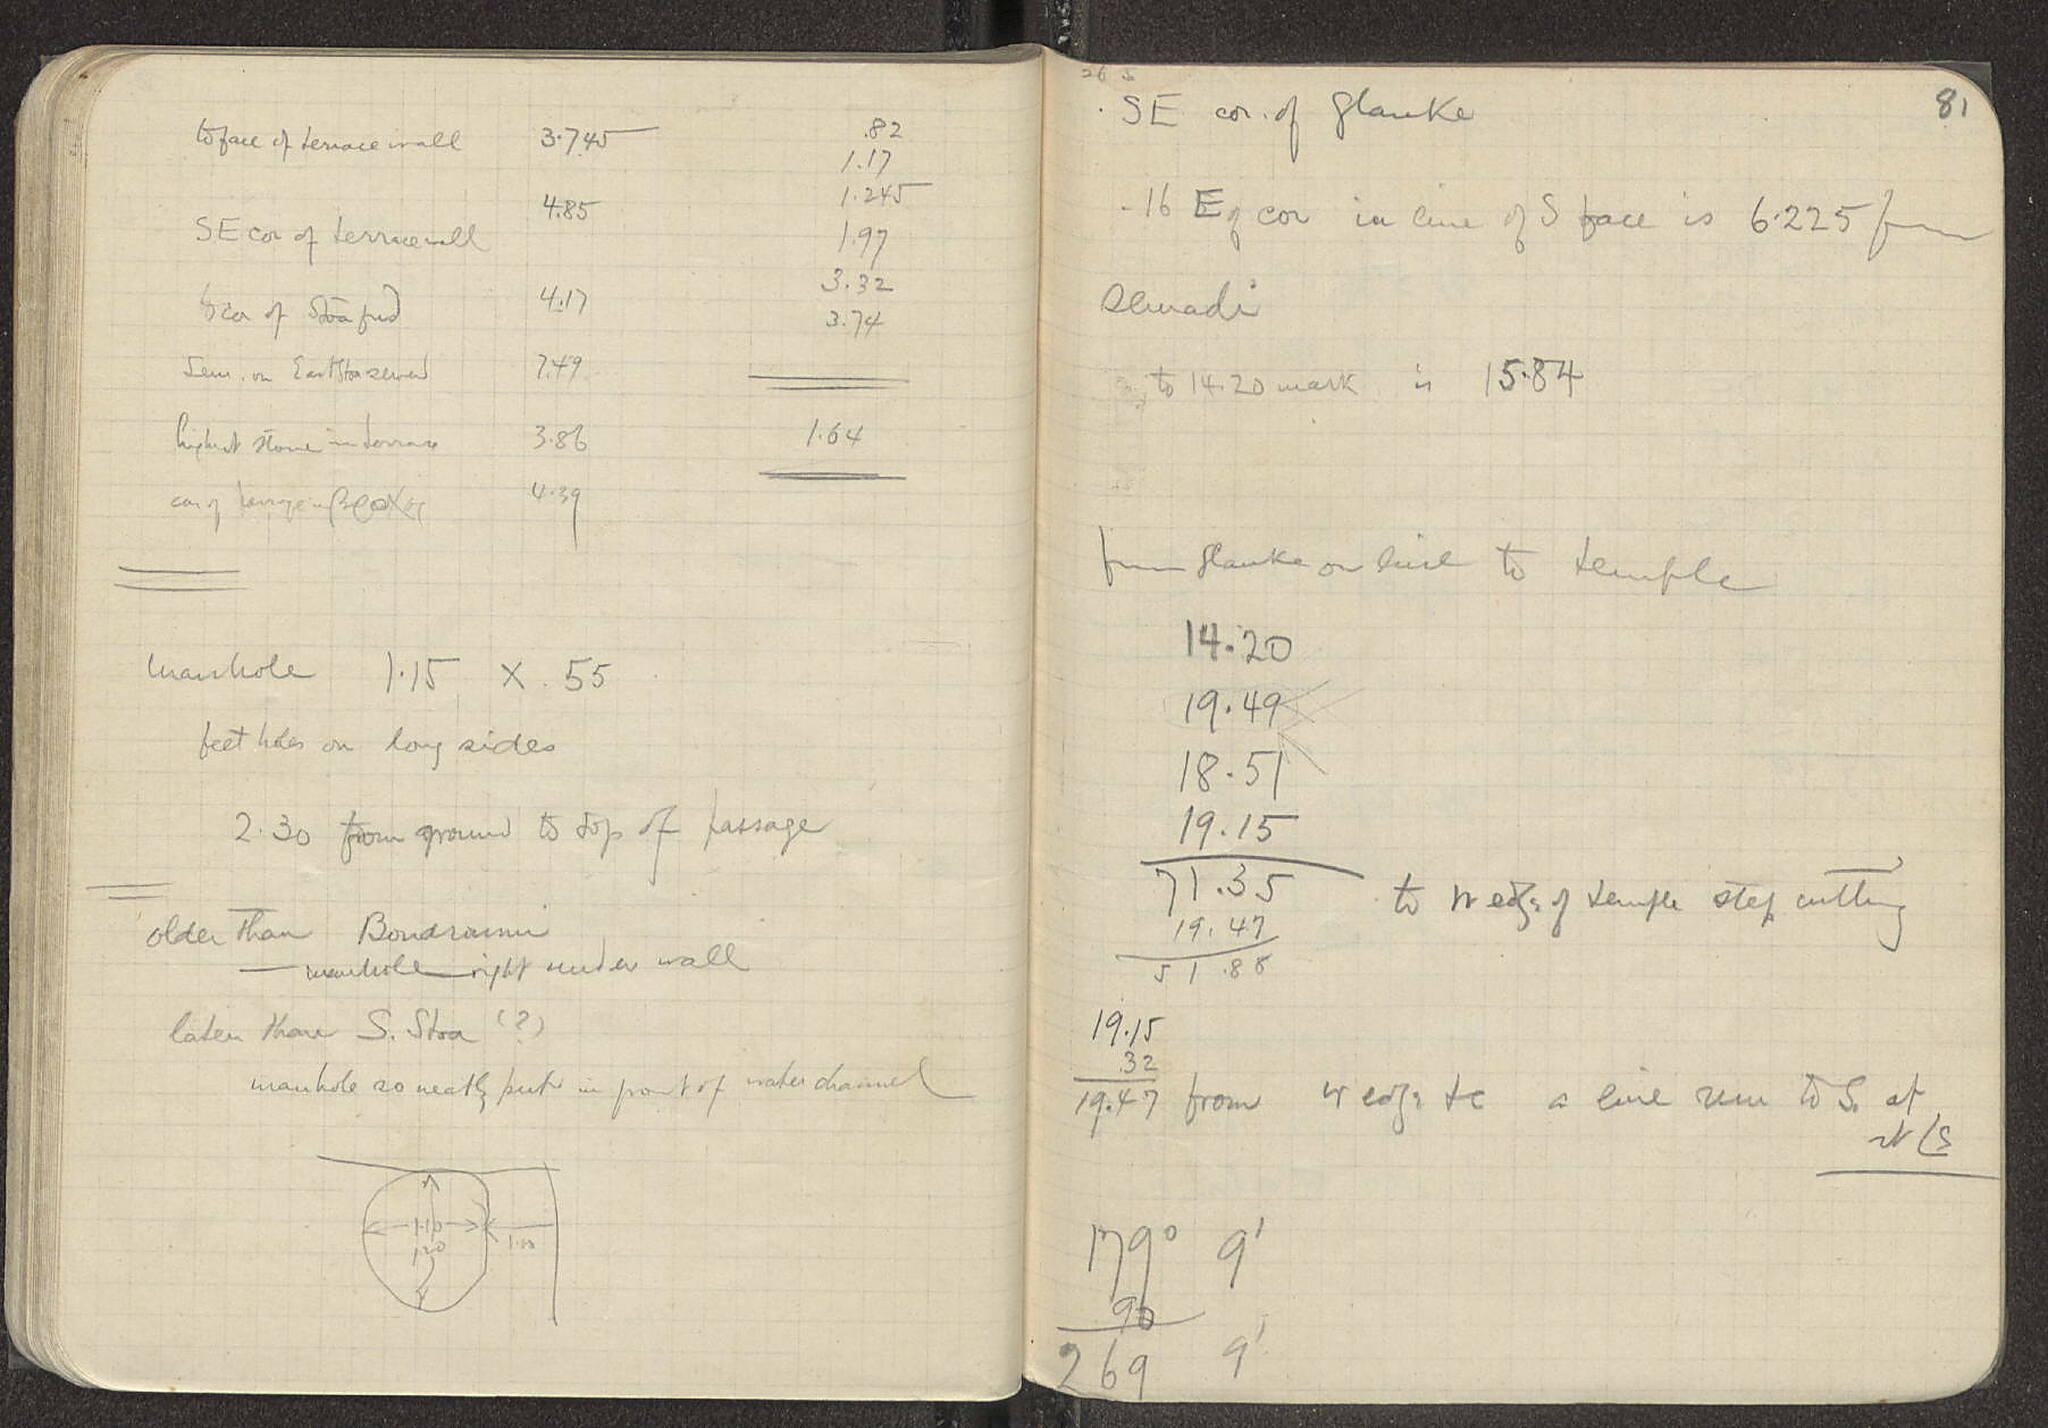 to face of terrace wall 3.745 .82
1.17
4.85 1.245
SE cor of terrace wall 1.97
3.32
cor of Stoa 4.17
3.74
on East Stoa 7.49
highest stone in terrace 3.86 1.64
cor of 4.39
manhole 1.15 X .55
feet holes on long sides
2.30 from ground to top of passage
older than
— manhole right under wall
later than S. Stoa (?)
manhole so neatly put in front of water channel
1.10
1.20
81
SE cor. of Glauke
.16 E of cor in line of S face is 6.225 from
to 14.20 mark is 15.84
from Glauke on line to temple
14.20
19.49
18.51
19.15
71.35 to W edge of temple step cutting
19.47
51.88
19.15
.32
19.47 from W edge to a line run to S. at
179° 9'
90
269 9'